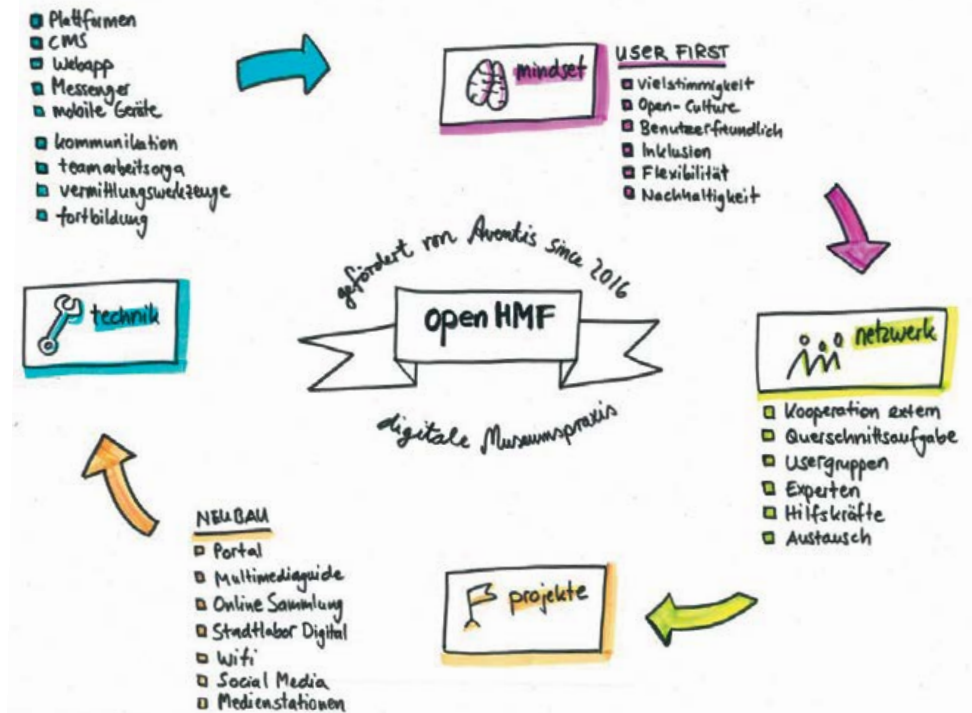 Plattformen
CMS
Webapp
Messenger
mobile Geräte
kommunikation
teamarbeitsorga
vermittlungswerkzeuge
fortbildung
mindset
USER FIRST
Vielstimmigkeit
Open-Culture
Benutzerfreundlich
Inklusion
Flexibilität
Nachhaltigkeit
gefördert von Aventis since 2016
open HMF
digitale Museumspraxis
technik
netzwerk
Kooperation extern
Querschnittsaufgabe
Usergruppen
Experten
Hilfskräfte
Austausch
NEUBAU
Portal
Multimediaguide
Online Sammlung
Stadtlabor Digital
Wifi
Social Media
Medienstationen
projekte